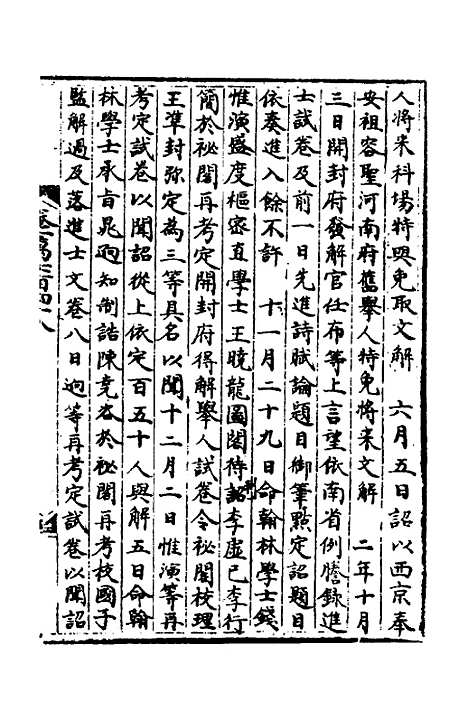 人將来科場特與免取文解　六月五日詔以西京奉
安祖容聖河南府舊舉人特免將来文解　二年十月
三日開封府發解官任布等上言望依南省例謄録進
士試卷及前一日先進詩賦論題目御筆㸃定詔題目
依奏進入餘不許　十一月二十九日命翰林學士錢
惟演盛度樞宻直學士王曉龍圖閣待制李虚已李行
簡於祕閣再考定開封府得解舉人試卷令祕閣校理
王準封弥定為三等具名以聞十二月二日惟演等再
考定試卷以聞詔從上依定百五十人與解五日命翰
林學士承旨晁逈知制誥陳堯咨於祕閣再考校國子
監解過及落進士文卷八日逈等再考定試卷以聞詔
卷一萬